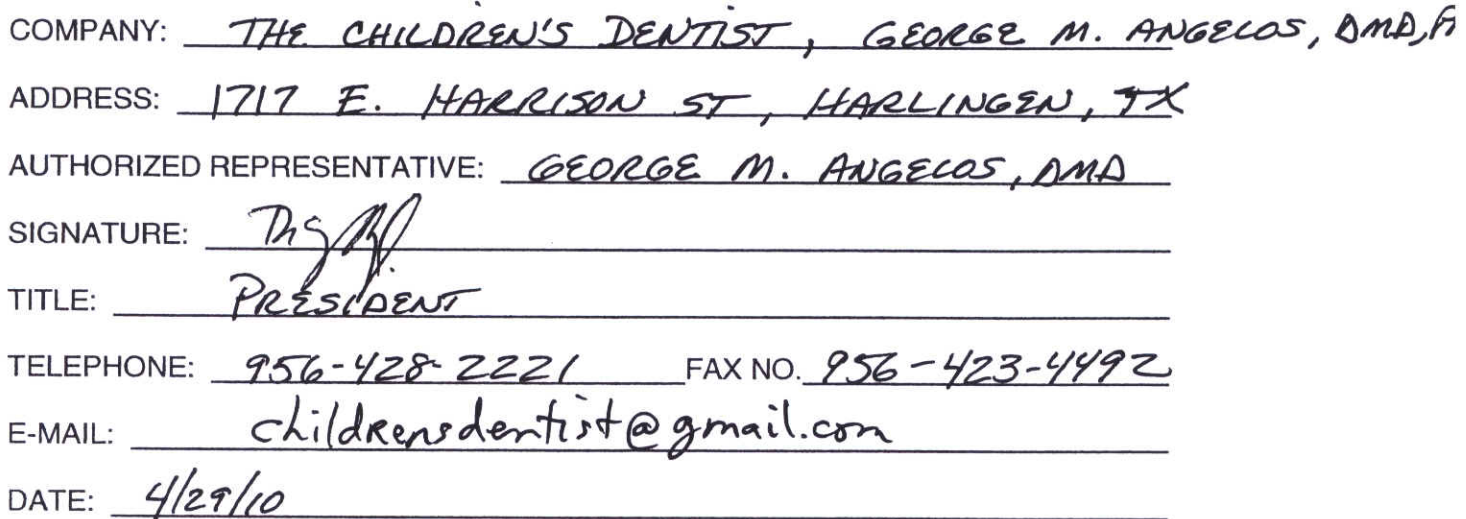 COMPANY: THE CHILDREN'S DENTIST, GEORGE M. ANGELOS, DMD,
ADDRESS: 1717 E. HARRISON ST, HARLINGEN, TX
AUTHORIZED REPRESENTATIVE: GEORGE M. ANGELOS, DMD
SIGNATURE:
TITLE: PRESIDENT
TELEPHONE: 956-428-2221 FAX NO. 956-423-4492
E-MAIL: childrensdentist@gmail.com
DATE: 4/29/10